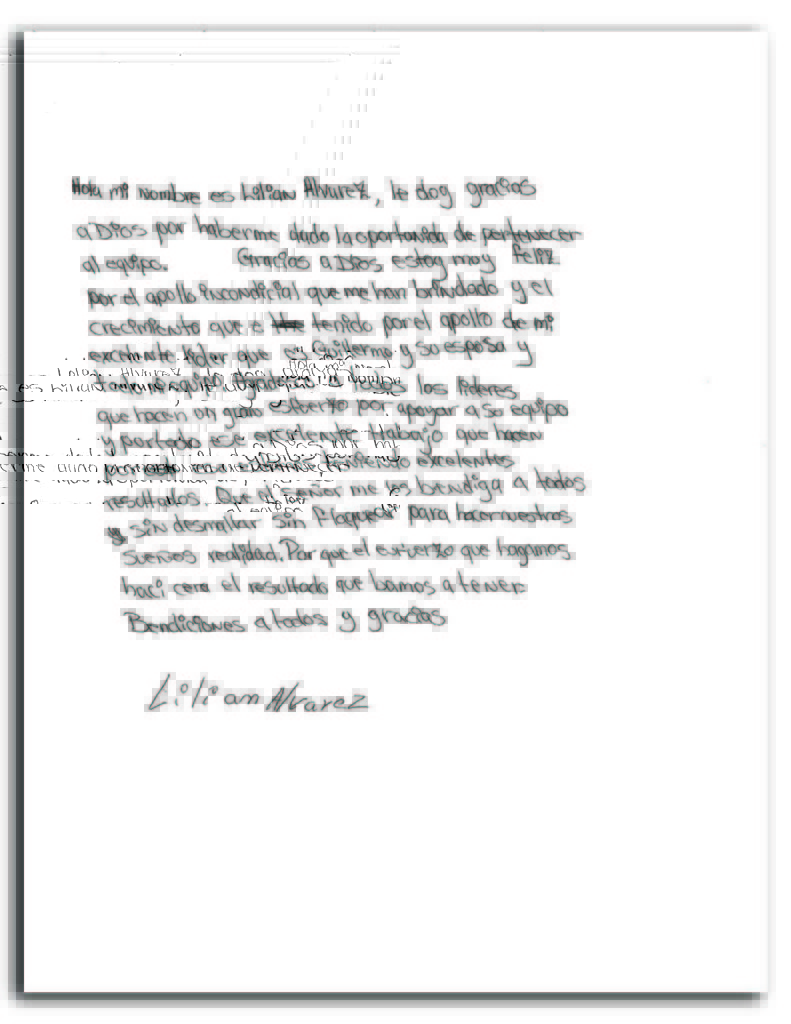 Hola mi nombre es Lilian Alvarez, le doy gracias
a Dios por haberme dado la oportunida de pertenecer
al equipo. Gracias a Dios estoy muy feliz
por el apollo incondicial que me han brindado y el
crecimiento que e tenido por el apollo de mi
excelente lider que es Guillermo y so esposa y
todos los lideres
que hacen un gran esfuerzo por apoyar a so equipo
y por todo ese excelente trabajo que hacen
excelentes
resultados. Que el señor me les bendiga a todos
sin desmallar sin flaquear para hacer nuestros
sueños realidad. Por que el esfuerzo que hagamos
haci cera el resultado que bamos a tener
Bendiciones a todos y gracias
Lilian Alvarez